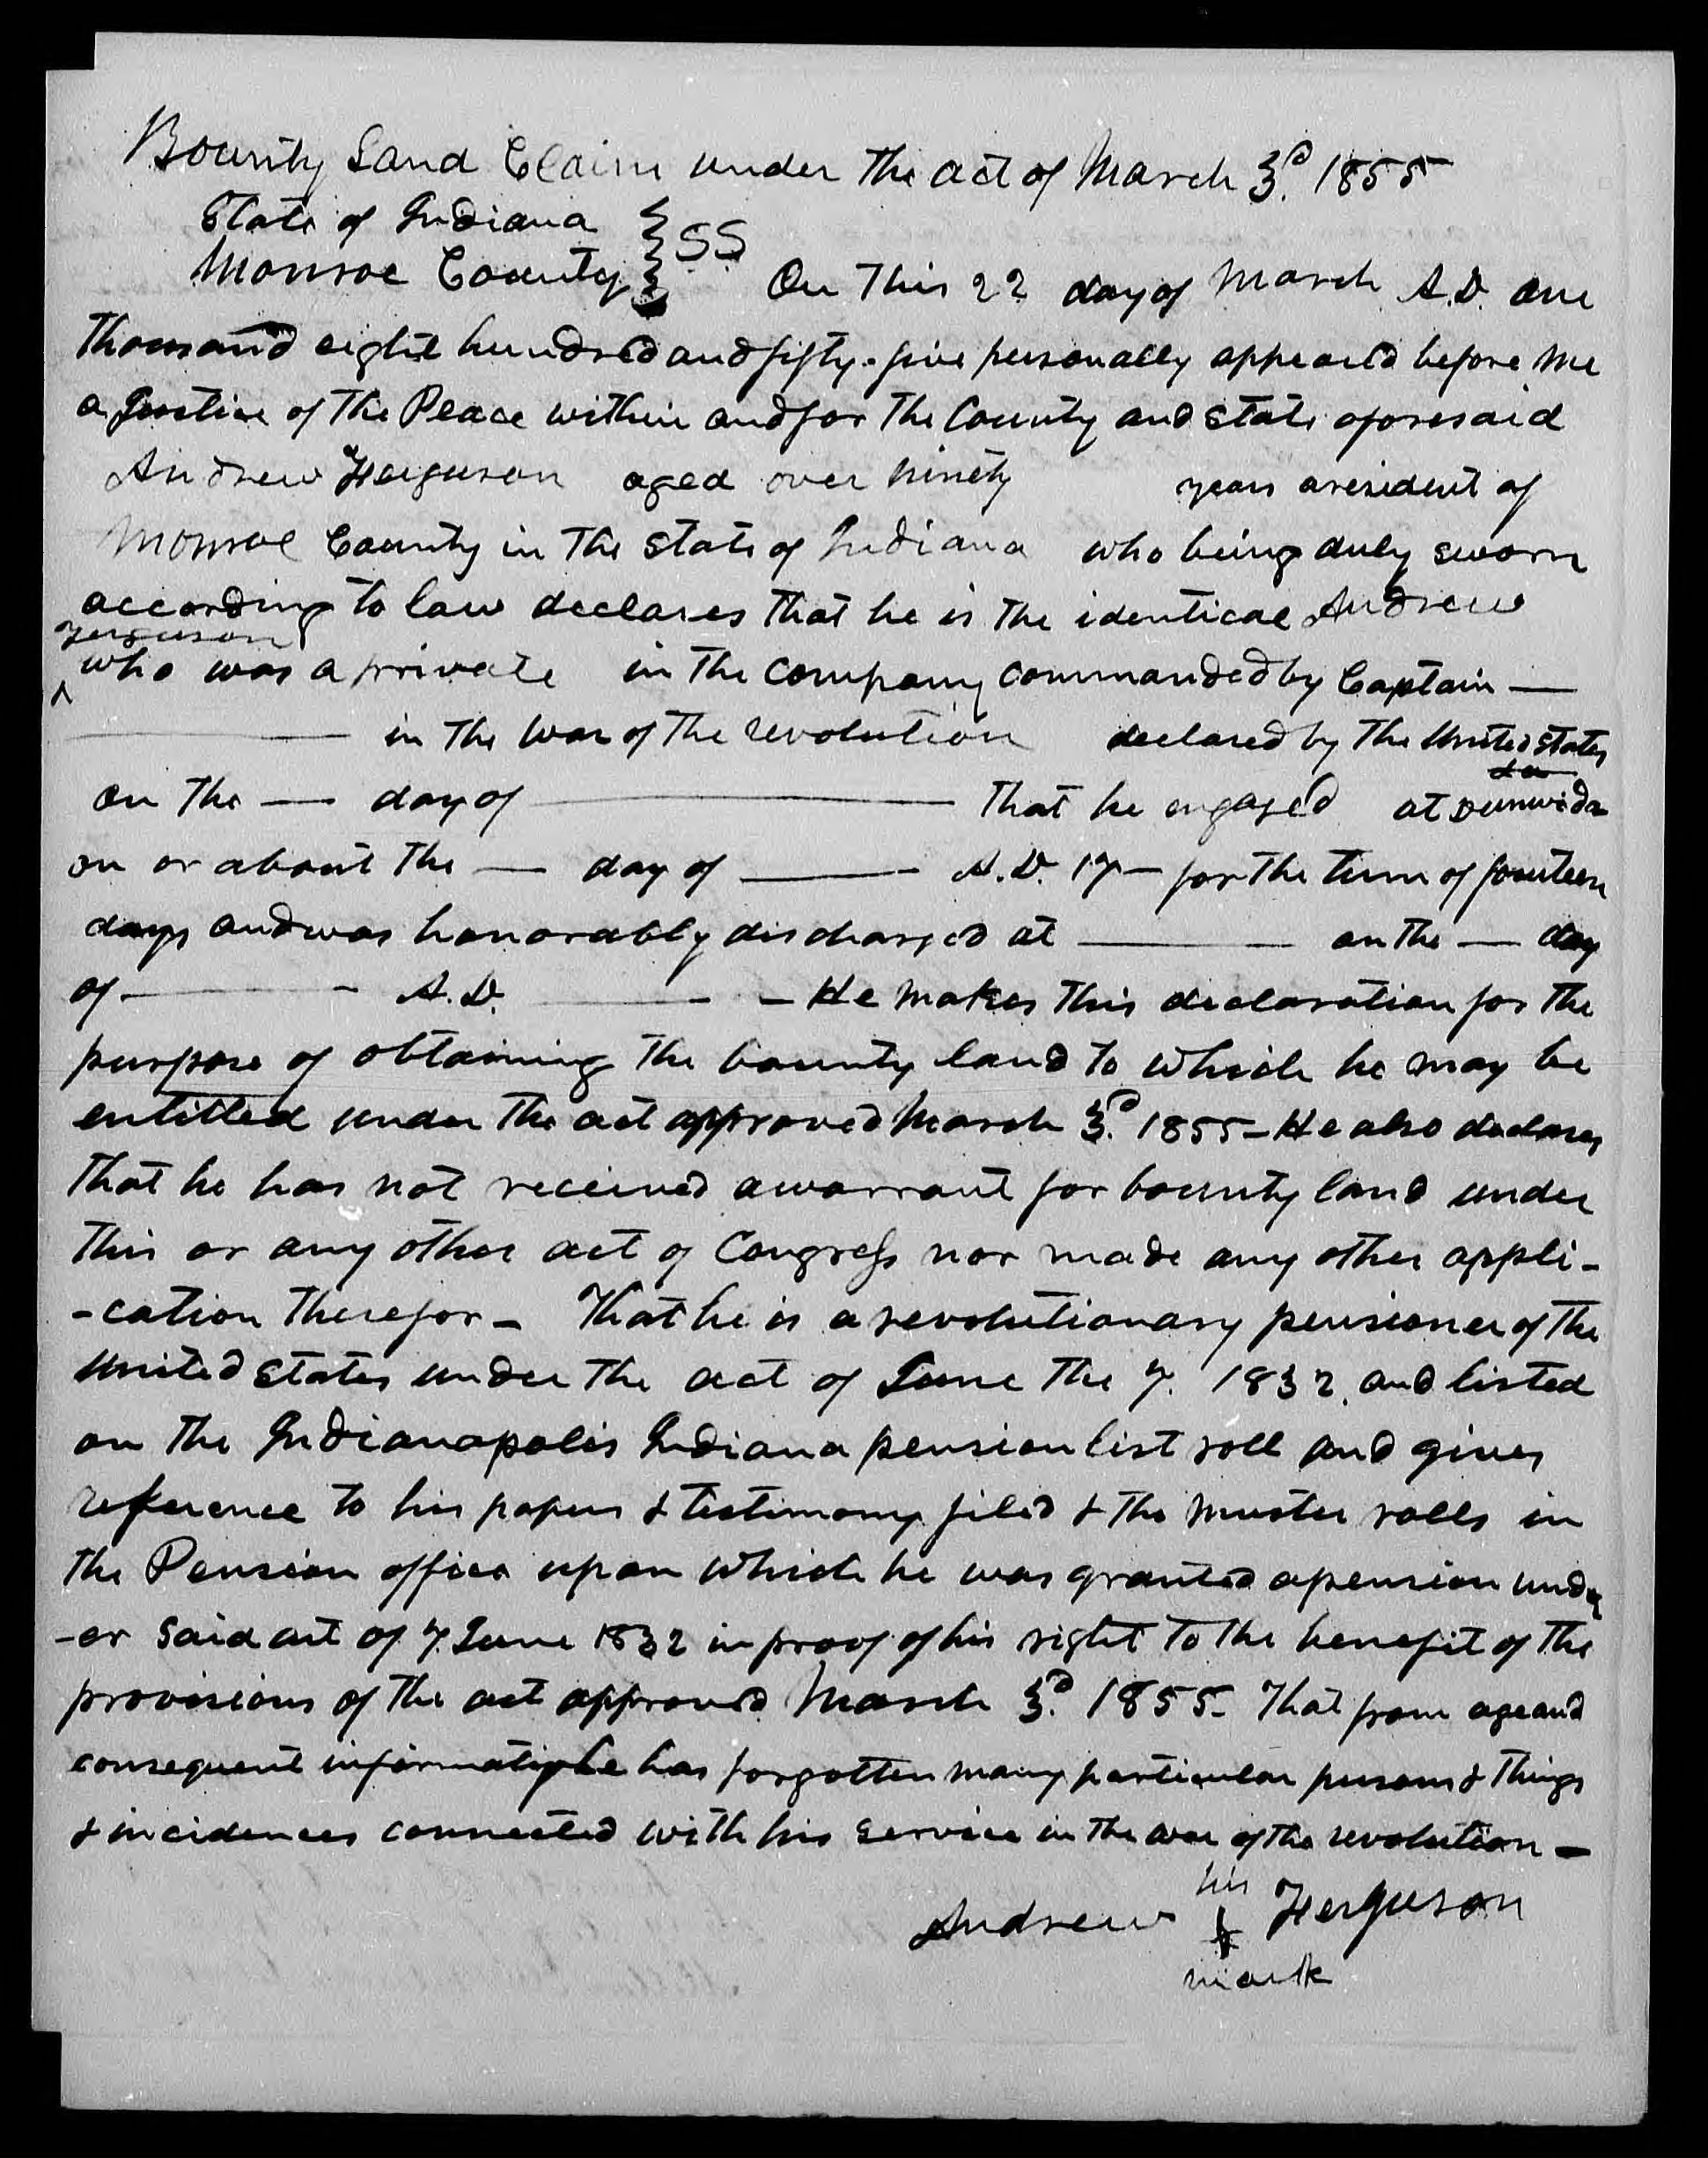 Bounty Land Claim under the act of March 3d. 1855
State of Indiana } SS
Monroe County } On this 22 day of March A.D. one
thousand eight hundred and fifty-five personally appeared before me
a Justice of the Peace within and for the County and State aforesaid
Andrew Ferguson aged over ninety years a resident of
Monroe County in the State of Indiana who being duly sworn
according to law declares that he is the identical Andrew
Ferguson
^ who was a private in the company commanded by Captain —
— in the war of the revolution declared by the United States
on the — day of — that he engaged at
on or about the — day of — A.D. 17— for the term of fourteen
days and was honorably discharged at — on the — day
of — A.D. — He makes this declaration for the
purpose of obtaining the bounty land to which he may be
entitled under the act approved March 3d. 1855 - He also declares
that he has not received a warrant for bounty land under
this or any other act of Congress nor made any other appli-
-cation therefor - That he is a revolutionary pensioner of the
United States under the act of June the 7. 1832. and listed
on the Indianapolis Indiana pension list roll and gives
reference to his papers & testimony filed & the muster rolls in
the Pension office upon which he was granted a pension und
-er said act of 7. June 1832 in proof of his right to the benefit of the
provisions of the act approved March 3d. 1855 - That from age and
consequent he has forgotten many particular persons & things
& incidences connected with his service in the war of the revolution -
his
Andrew X Ferguson
mark